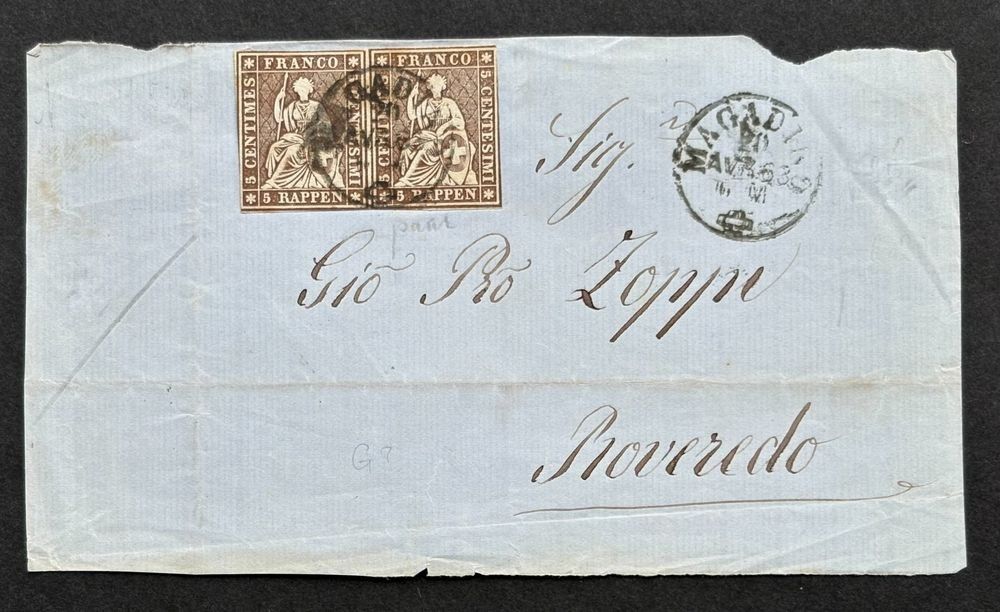 FRANCO
5 CENTIMES
5 RAPPEN
5 CENTESIMI
FRANCO
5 CENTIMES
5 RAPPEN
5 CENTESIMI
MAGADINO
20
AVR 63
Sig.
Gio Pro Zoppi
Roveredo
G?